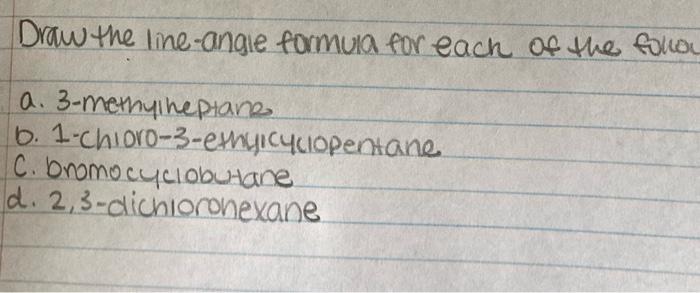 Draw the line-angle formula for each of the follow
a. 3-methylheptane
b. 1-chloro-3-ethylcyclopentane
C. bromocyclobutane
d. 2,3-dichlorohexane